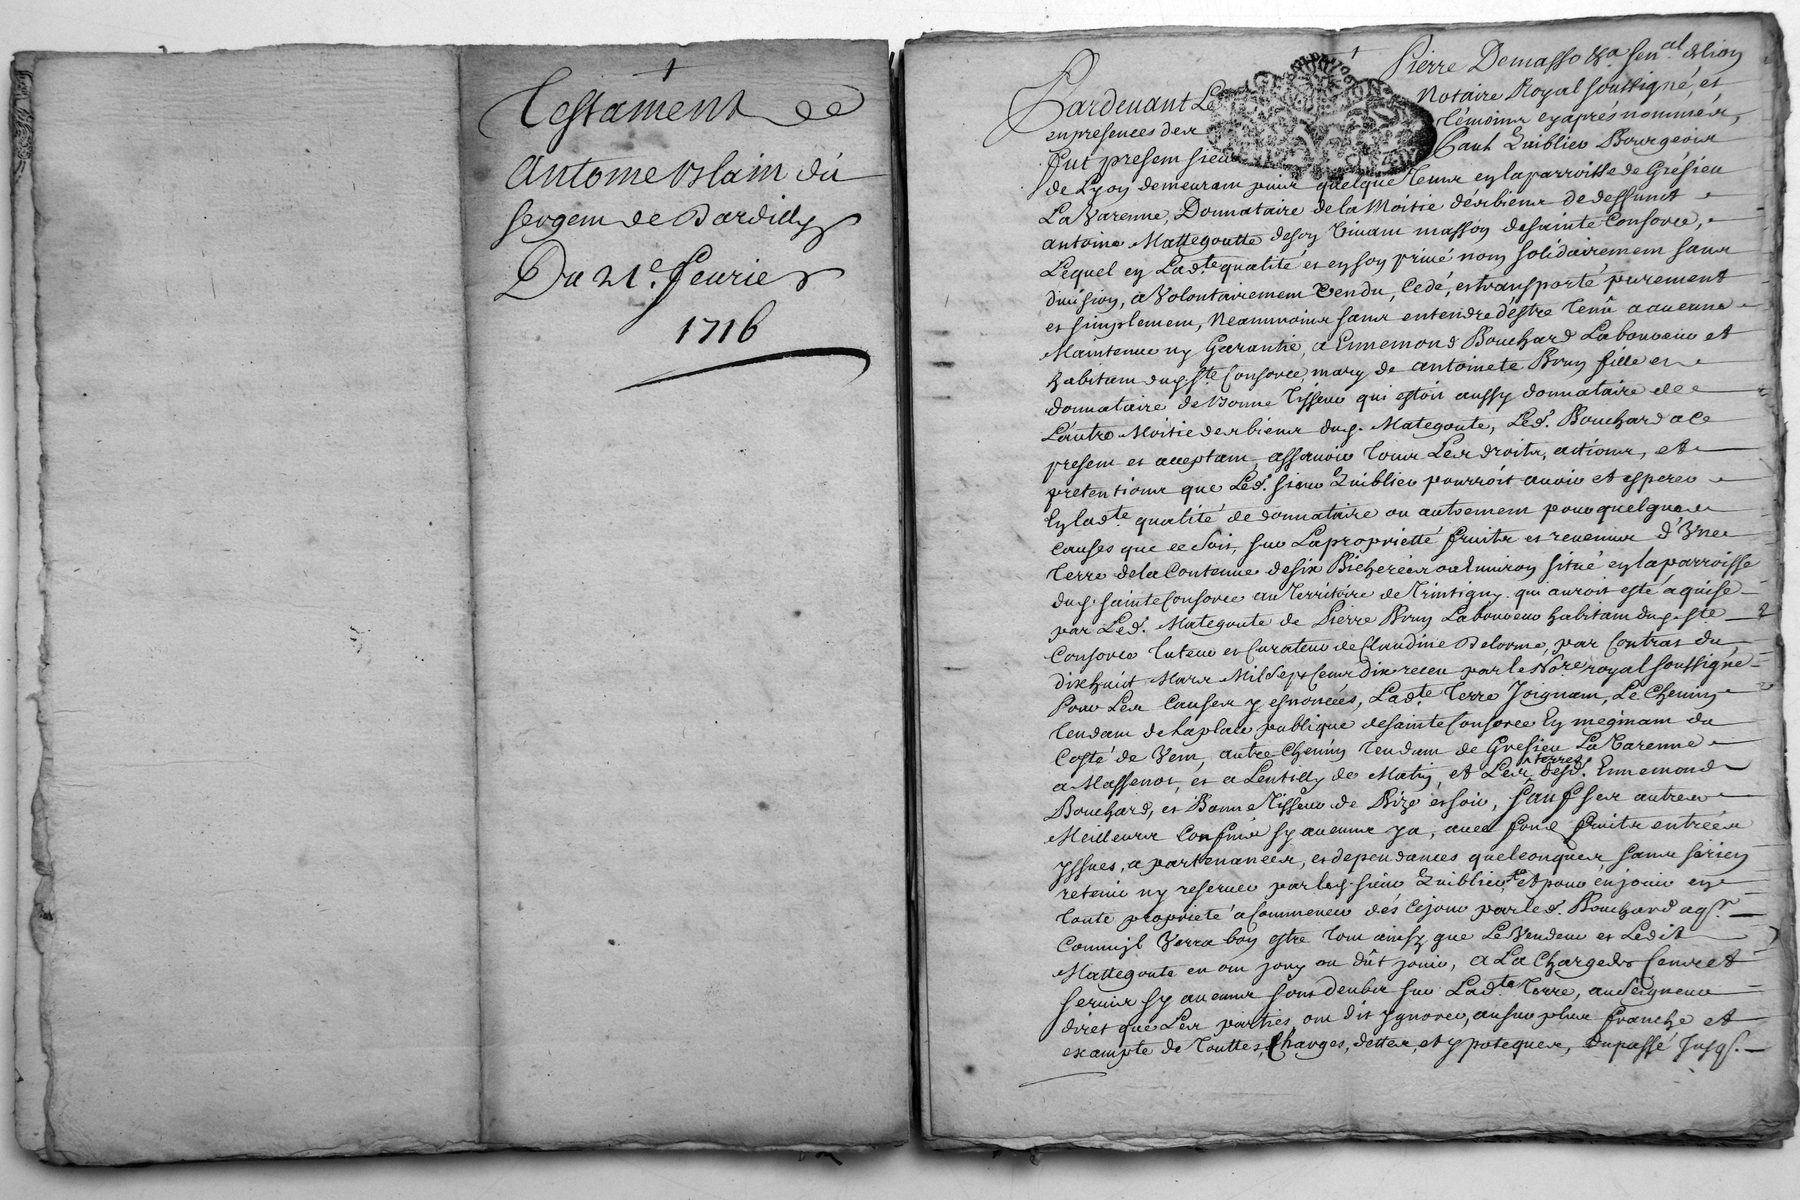 Testament de
Antoine Vslain dit
sergent de Dardilly
Du 21e. feurier
1716
Pierre Demasso &a senal. de lion
Pardeuant Le notaire Royal soussigné, et
en presences des témoins cyaprés nommés,
fut present sieur Quiblier Bourgeois
de Lyon demeurant puis quelque tems en la parroisse de Gresieu
La Varenne, Donnataire de la Moitié des biens de deffunct
antoine Mattegoutte de son viuant masson de sainte Consorce,
Lequel en Ladte. qualité et en son priué nom solidairement sans
diuision, a Volontairement vendu, cedé, et transporté purement
et simplement, Neanmoins sans entendre d'estre tenû a aucune
Maintenue ny Garantie, a Ennemond Bouchard Laboureur et
habitant dud. ste. Consorce, mary de antoinete Brun fille et
donnataire de Bonne Tisseur qui estoit aussy donnataire de
L'autre Moitié des biens dud. Mategoute, Led. Bouchard a ce
present et acceptant, assauoir tous Les droits, actions, et
pretentions que Led. sieur Quiblier pourroit auoir et esperer
En ladte. qualité de donnataire ou autrement pour quelques
Causes que ce soit, sur La proprietté fruits et reuenus d'Vne
Terre de la Contenue de six Bicherées ou enuiron situé en la parroisse
dud. sainte Consorce au Territoire de Trintigny qui auroit esté aquise
par Led. Mategoute de Pierre Brun Laboureur habitant dud. ste
Consorce tuteur et Curateur de Claudine Delorme, par Contrat du
dixhuict Mars Mil sept Cens dix receu par le Nore royal soussigné
Pour Les Causes y enoncées, Ladte. Terre Joignant, Le Chemin
tendant de la place publique de sainte Consorce En meginant du
Costé de Vent, autre Chemin tendant de Gresieu La Varenne
a Massenot, et a Lentilly de Matin, et Les terres desd. Ennemond
Bouchard, et Bonne Tisseur de Bize et soir, sauf ses autres
Meilleurs Confins sy aucuns y a, auec fond fruits entrées
yssues, apartenances, et dependances quelconques, sans s'i rien
retenir ny reseruer par led. sieur Quiblier, et pour en jouir en
toute proprieté a Commencer dés ce jour par led. Bouchard aqr.
Comm'il Verra bon estre tout ainsy que Le Vendeur et Ledit
Mattegoute en ont jouy ou dût jouir, a La Charge des Cens et
seruis sy aucuns sont deubs sur Ladte. Terre, au seigneur
direct que Les parties ont dit ygnorer, au surplus franche et
exampte de Touttes Charges, dettes, et ypoteques, du passé Jusqs.